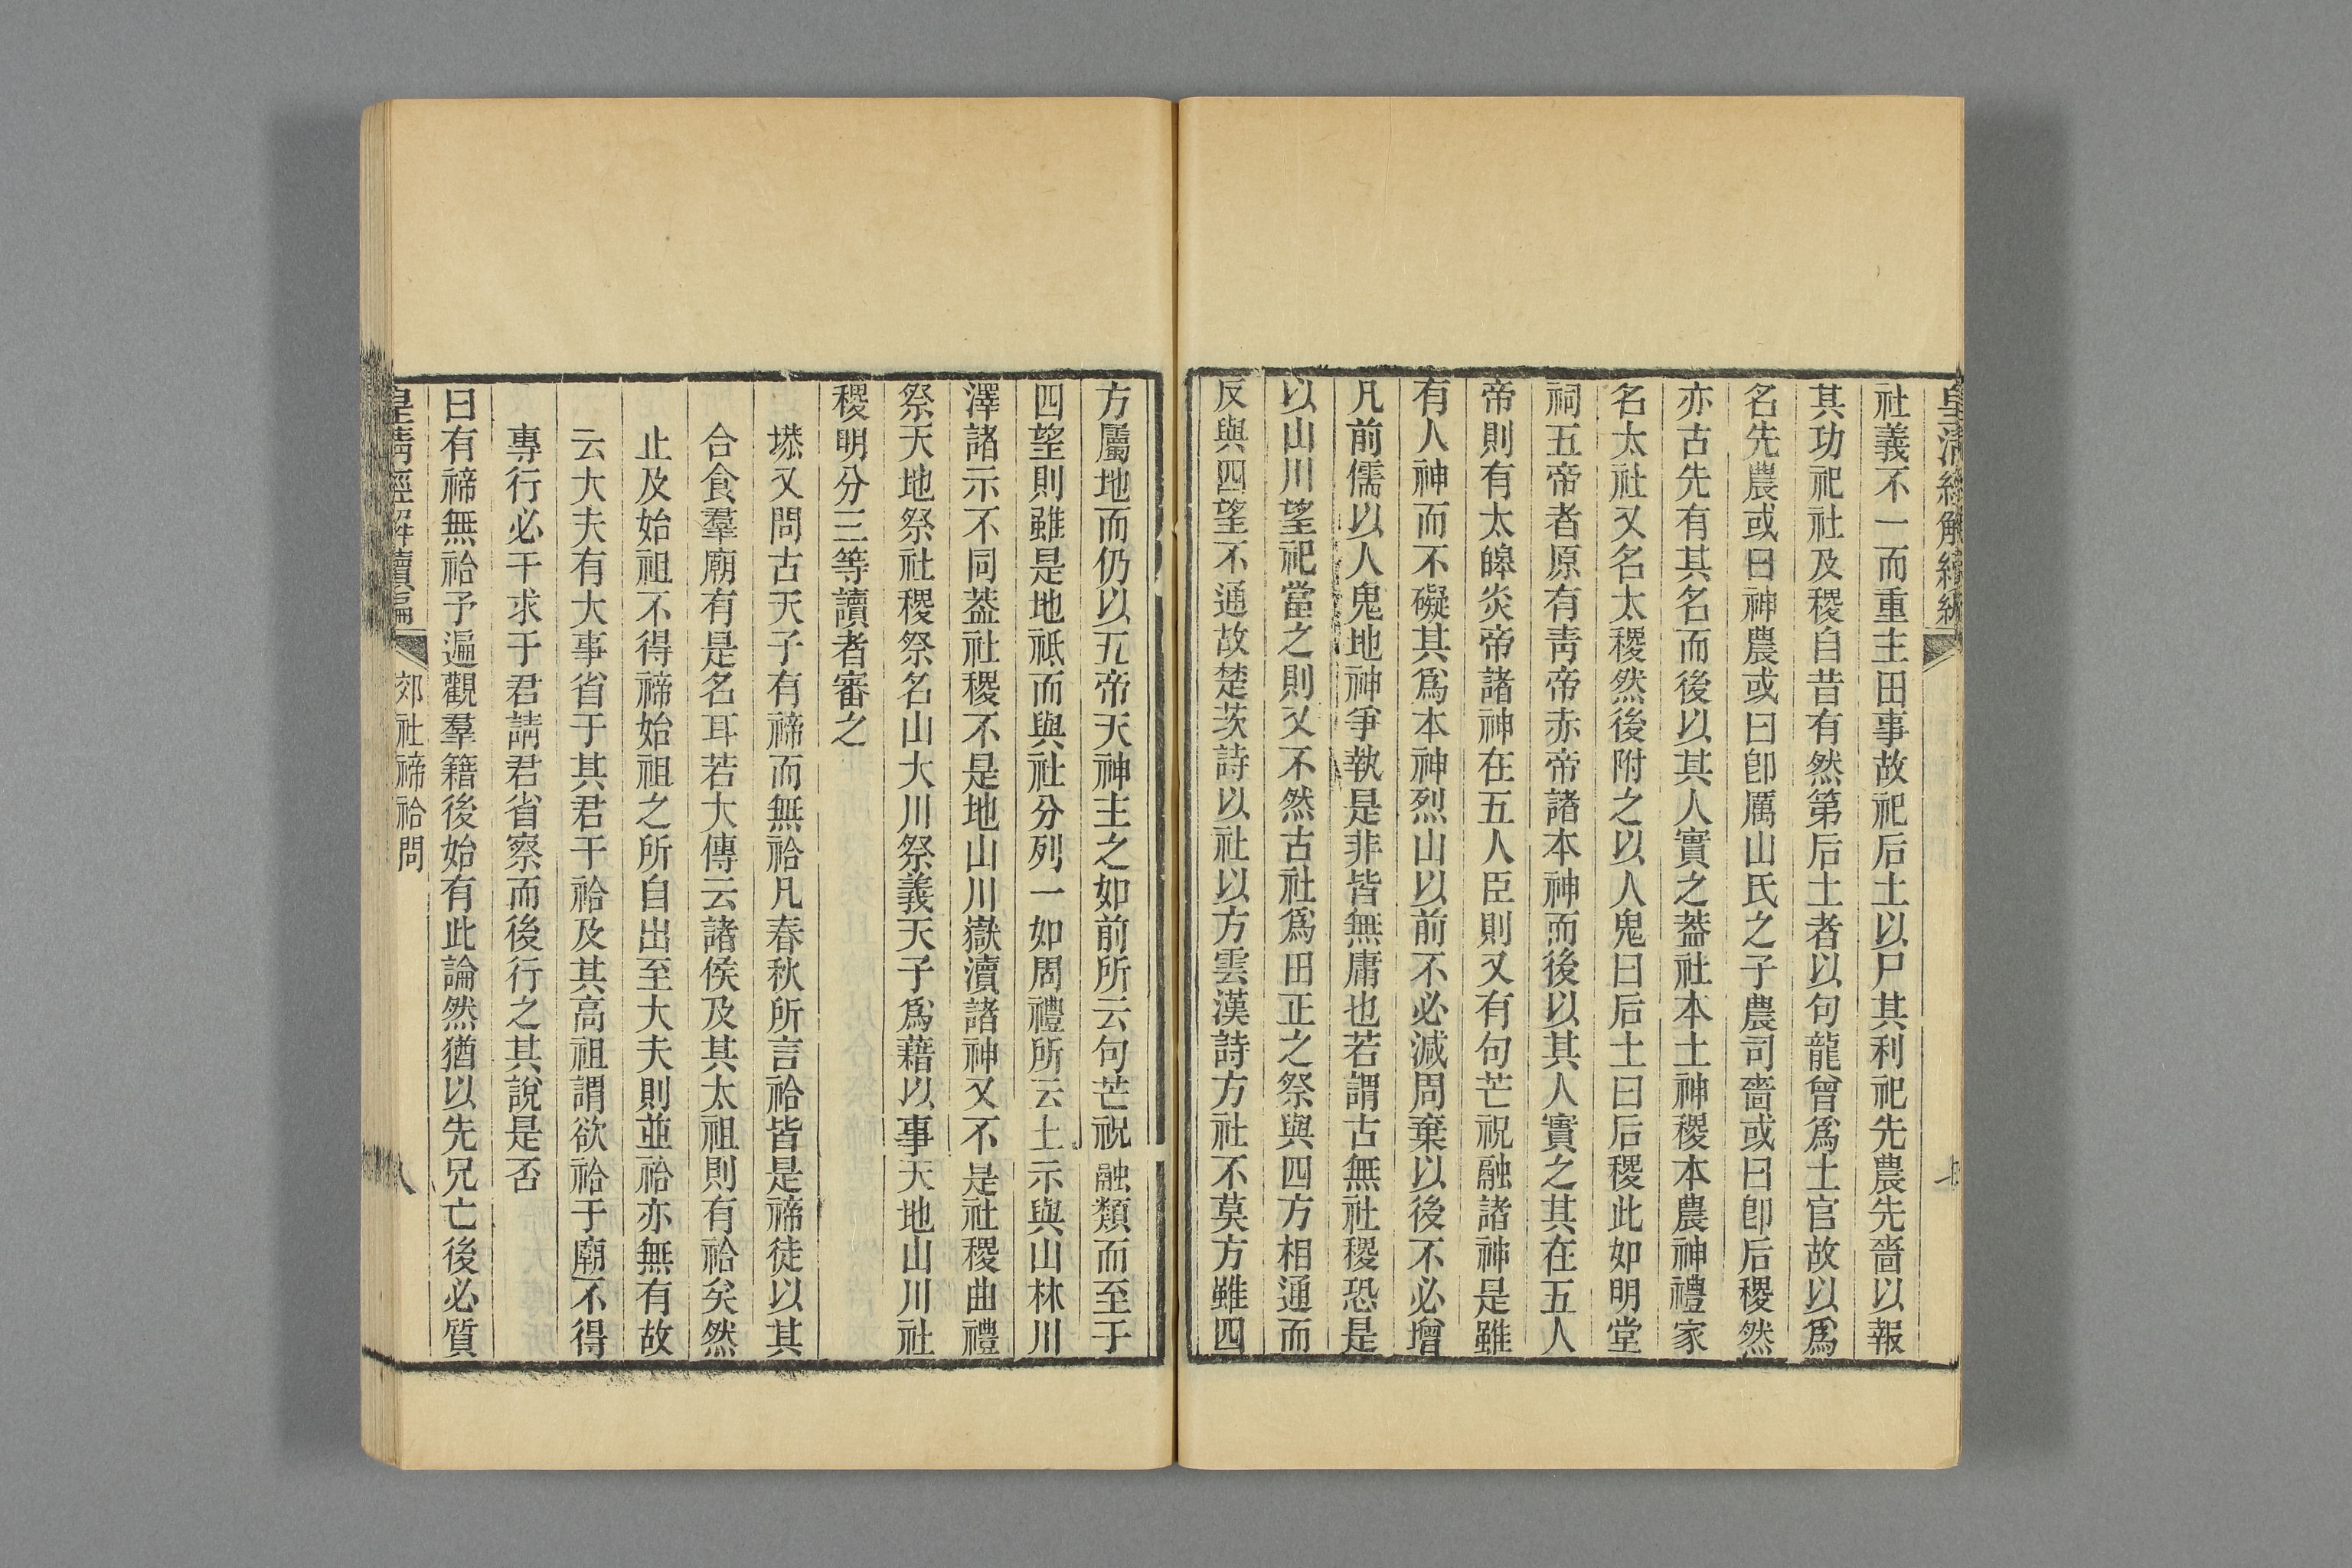 皇清經解續編
七
社義不一而重主田事故祀后土以尸其利祀先農先嗇以報
其功祀社及稷自昔有然第后土者以句龍曾爲土官故以爲
名先農或曰神農或曰卽厲山氏之子農司嗇或曰卽后稷然
亦古先有其名而後以其人實之葢社本土神稷本農神禮家
名太社又名太稷然後附之以人鬼曰后土曰后稷此如明堂
祠五帝者原有靑帝赤帝諸本神而後以其人實之其在五人
帝則有太皞炎帝諸神在五人臣則又有句芒祝融諸神是雖
有人神而不礙其爲本神烈山以前不必減周棄以後不必增
凡前儒以人鬼地神爭執是非皆無庸也若謂古無社稷恐是
以山川望祀當之則又不然古社爲田正之祭與四方相通而
反與四望不通故楚茨詩以社以方雲漢詩方社不莫方雖四
方屬地而仍以五帝天神主之如前所云句芒祝融類而至于
四望則雖是地祗而與社分列一如周禮所云土示與山林川
澤諸示不同葢社稷不是地山川嶽瀆諸神又不是社稷曲禮
祭天地祭社稷祭名山大川祭義天子爲藉以事天地山川社
稷明分三等讀者審之
塨又問古天子有禘而無祫凡春秋所言祫皆是禘徒以其
合食羣廟有是名耳若大傳云諸侯及其太祖則有祫矣然
止及始祖不得禘始祖之所自出至大夫則並祫亦無有故
云大夫有大事省于其君干祫及其高祖謂欲祫于廟不得
專行必干求于君請君省察而後行之其說是否
曰有禘無祫予遍觀羣籍後始有此論然猶以先兄亡後必質
皇淸經解續編
郊社禘祫問
八